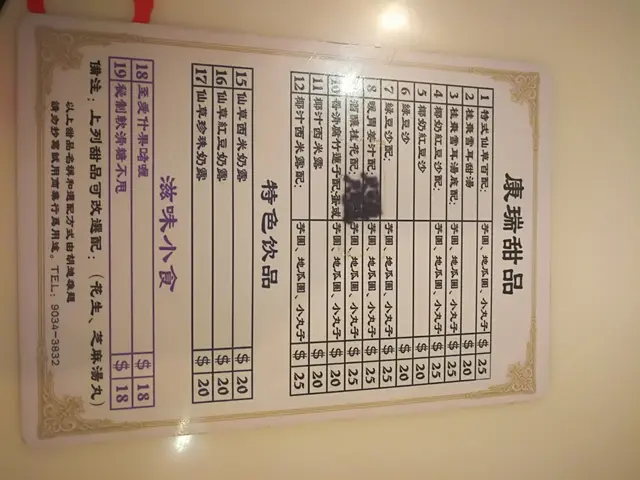 康瑞甜品
1 特式仙草百配: 芋圓、地瓜圓、小丸子 $ 25
2 桂棗雪耳甜湯 $ 20
3 桂棗雪耳湯底配: 芋圓、地瓜圓、小丸子 $ 25
4 椰奶紅豆沙配: 芋圓、地瓜圓、小丸子 $ 25
5 椰奶紅豆沙 $ 20
6 綠豆沙 $ 20
7 綠豆沙配: 芋圓、地瓜圓、小丸子 $ 25
8 暖胃薑汁配: 芋圓、地瓜圓、小丸子 $ 25
桂花配: 芋圓、地瓜圓、小丸子 $ 25
10 香滑腐竹蓮子配蛋或 芋圓、地瓜圓、小丸子 $ 20
11 椰汁西米露 $ 20
12 椰汁西米露配: 芋圓、地瓜圓、小丸子 $ 25
特色飲品
15 仙草西米奶露 $ 20
16 仙草紅豆奶露 $ 20
17 仙草珍珠奶露 $ 20
滋味小食
18 至愛什果啫喱 $ 18
19 秘制軟滑糖不甩 $ 18
備注:上列甜品可改選配:(花生、芝麻湯丸)
以上甜品名稱和選配方式由
請勿抄寫試用商業行爲用途。TEL: 9034-3832